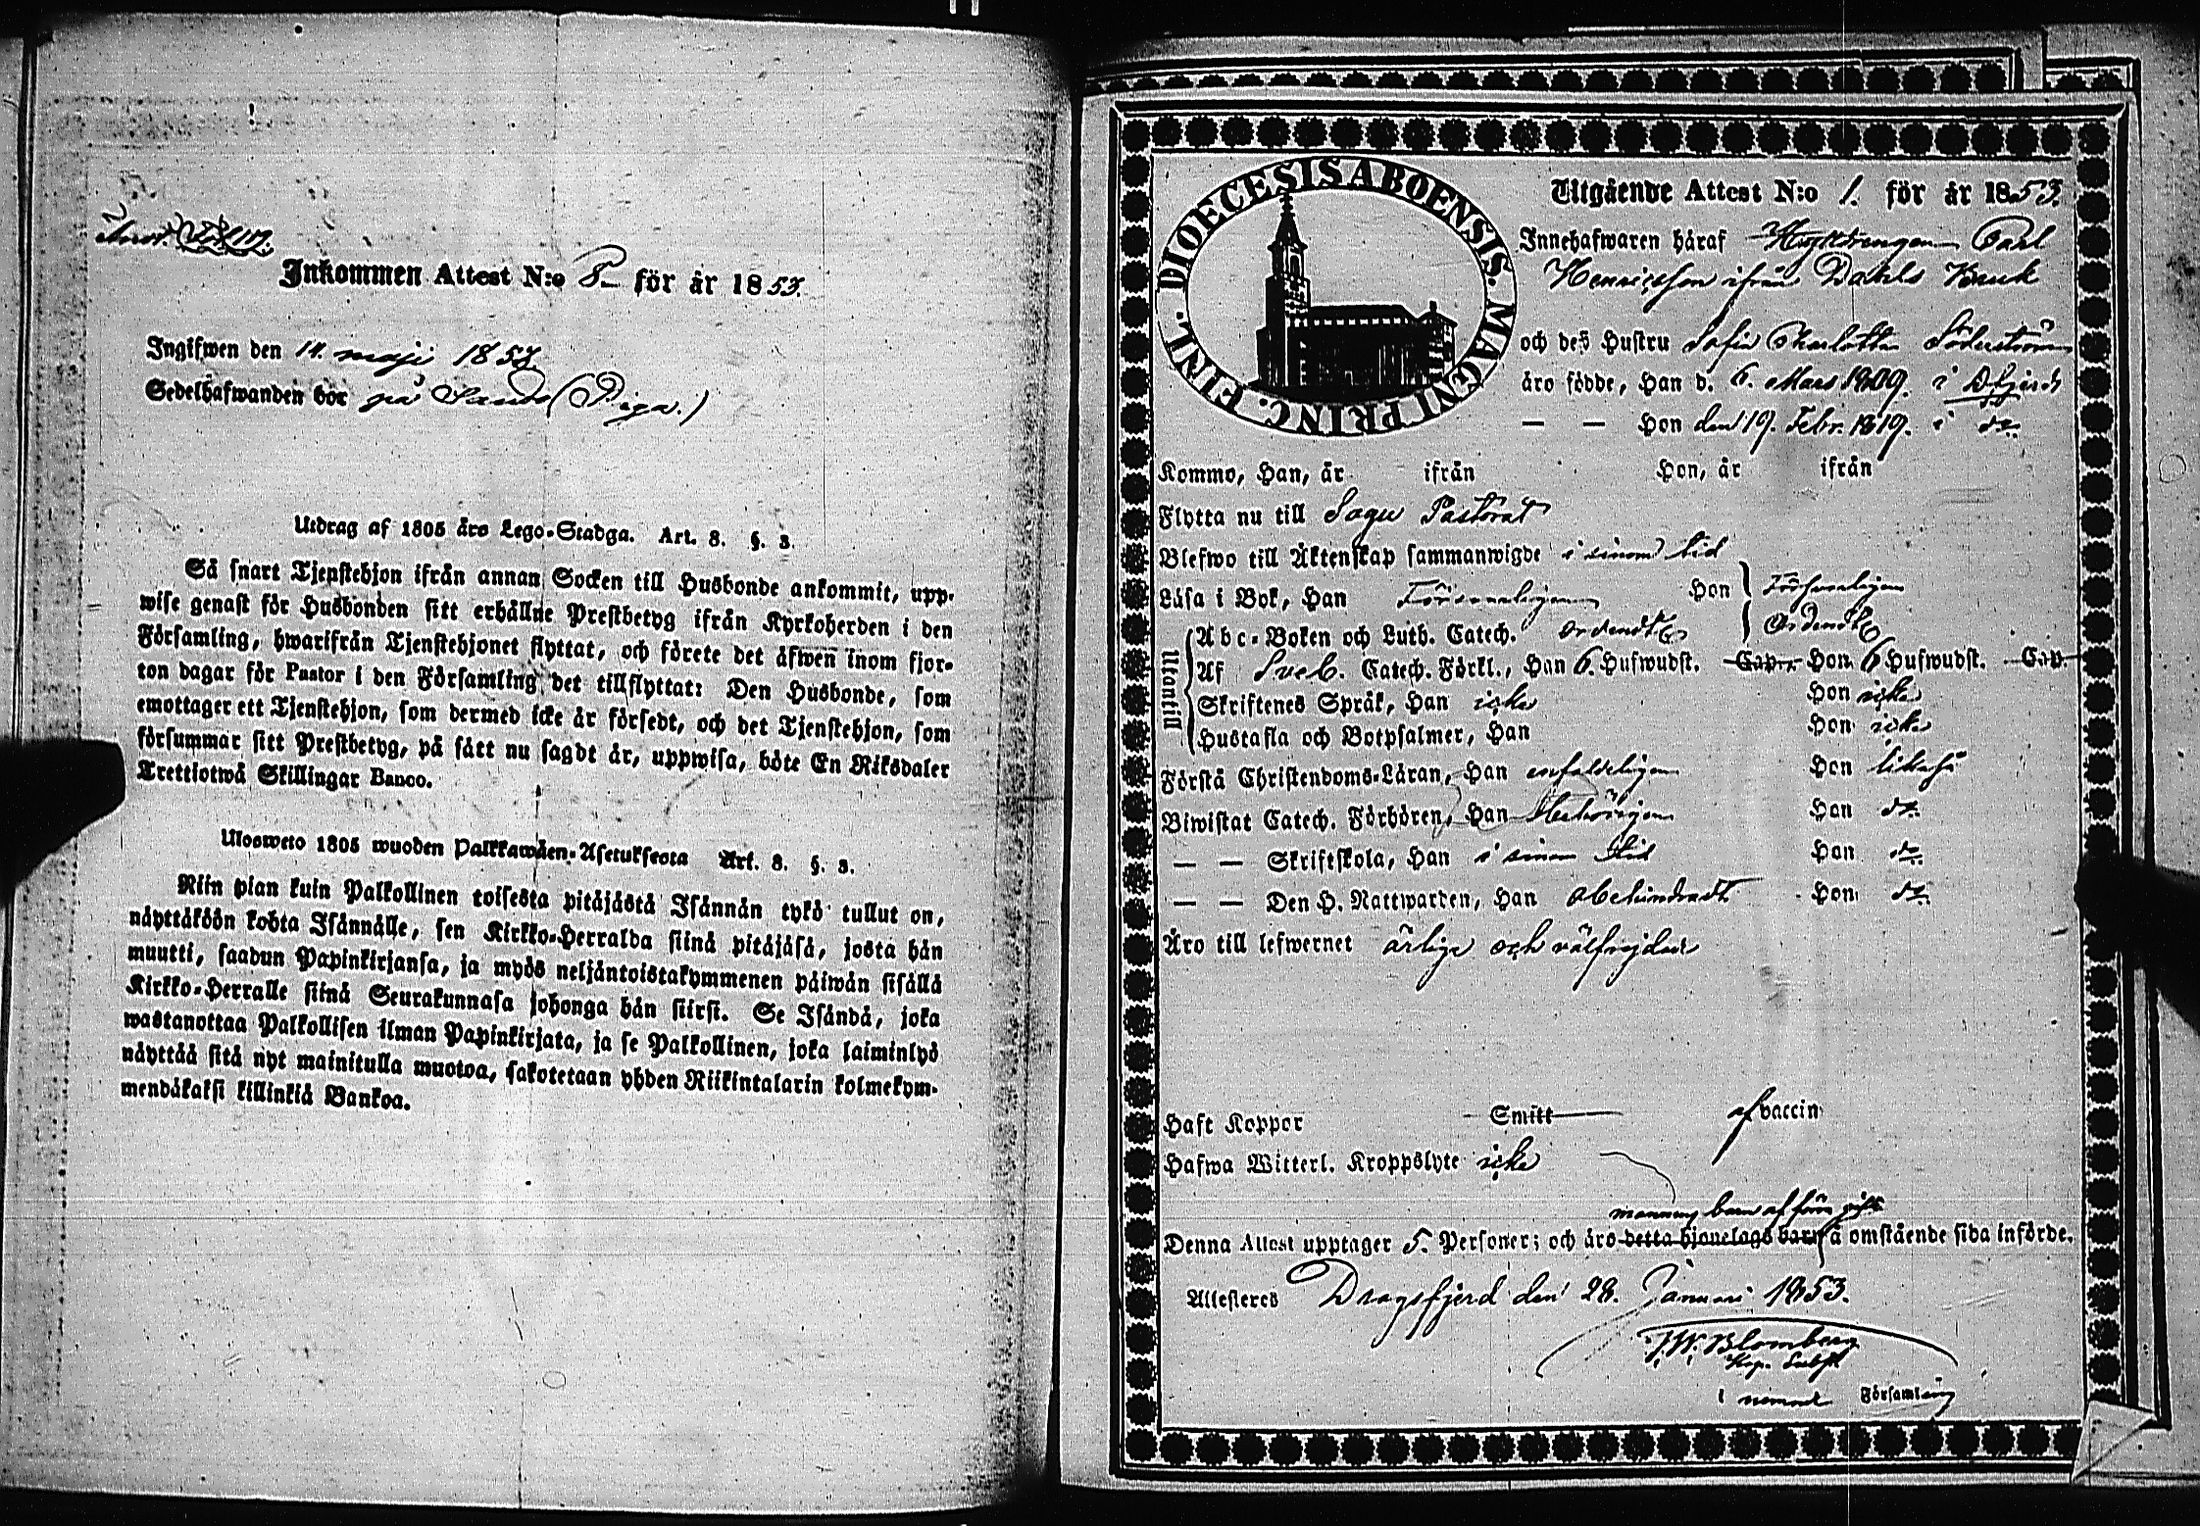 Inkommen Attest N:o 8 för år 1853.
Ingifwen den 14. maji 1853.
Sedelhafwanden bor på Sando (Piga.)
Utdrag af 1805 års Lego-Stadga. Art. 8. §. 3.
Så snart Tjenstehjon ifrån annan Socken till Husbonde ankommit, upp-
wise genast för Husbonden sitt erhållne Prestbetyg ifrån Kyrkoherden i den
Församling, hwarifrån Tjenstehjonet flyttat, och förete det äfwen inom fjor-
ton dagar för Pastor i den Församling det tillflyttat: Den Husbonde, som
emottager ett Tjenstehjon, som dermed icke är försedt, och det Tjenstehjon, som
försummar sitt Prestbetyg, på sätt nu sagdt är, uppwisa, böte En Riksdaler
Trettiotwå Skillingar Banco.
Ulosweto 1805 wuoden Palkkawäen-Asetuksesta Art. 8. §. 3.
Niin pian kuin Palkollinen toisesta pitäjästä Isännän tykö tullut on,
näyttäköön kohta Isännälle, sen Kirkko-Herralda siinä pitäjäsä, josta hän
muutti, saadun Papinkirjansa, ja myös neljäntoistakymmenen päiwän sisällä
Kirkko-Herralle siinä Seurakunnasa johonga hän siirsi. Se Isändä, joka
wastanottaa Palkollisen ilman Papinkirjata, ja se Palkollinen, joka laiminlyö
näyttää sitä nyt mainitulla muotoa, sakotetaan yhden Riikintalarin kolmekym-
mendäkaksi killinkiä Bankoa.
DIOECESIS ABOENSIS. MAGNI PRINC. FINL.
Utgående Attest N:o 1. för år 1853.
Innehafwaren häraf Carl
Henricsson ifrån Dahls Bruk
och des Hustru Sofia Charlotta Söderström
äro födde, Han d. 6. Mars 1809. i Dfjerd
— — Hon den 19. Febr. 1819. i do
Kommo, Han, år ifrån Hon, år ifrån
Flytta nu till Sagu Pastorat
Blefwo till Äktenskap sammanwigde i sinom tid
Läsa i Bok, Han Försvarligen Hon Försvarligen
Utontill
Abc-Boken och Luth. Catech. Ordentl. Ordentl.
Af Sveb. Catech. Förkl., Han 6. Hufwudst. Cap. Hon 6 Hufwudst. Cap.
Skriftenes Språk, Han icke Hon icke
Hustafla och Botpsalmer, Han Hon icke
Förstå Christendoms-Läran, Han enfaldeligen Hon likaså
Biwistat Catech. Förhören, Han Behörigen Hon do
— — Skriftskola, Han i sinom tid Hon do
— — Den H. Nattwarden, Han obehindradt Hon do
Äro till lefwernet ärlige och välfrejdade
Haft Koppor Smitt af vaccin
Hafwa Witterl. Kroppslyte icke
mannens barn af förra gifte
Denna Attest upptager 5. Personer; och äro detta hjonelags barn å omstående sida införde.
Attesteres Dragsfjerd den 28. Januari 1853.
J. W. Blomberg
Kap. Subst
i nämnde Församling